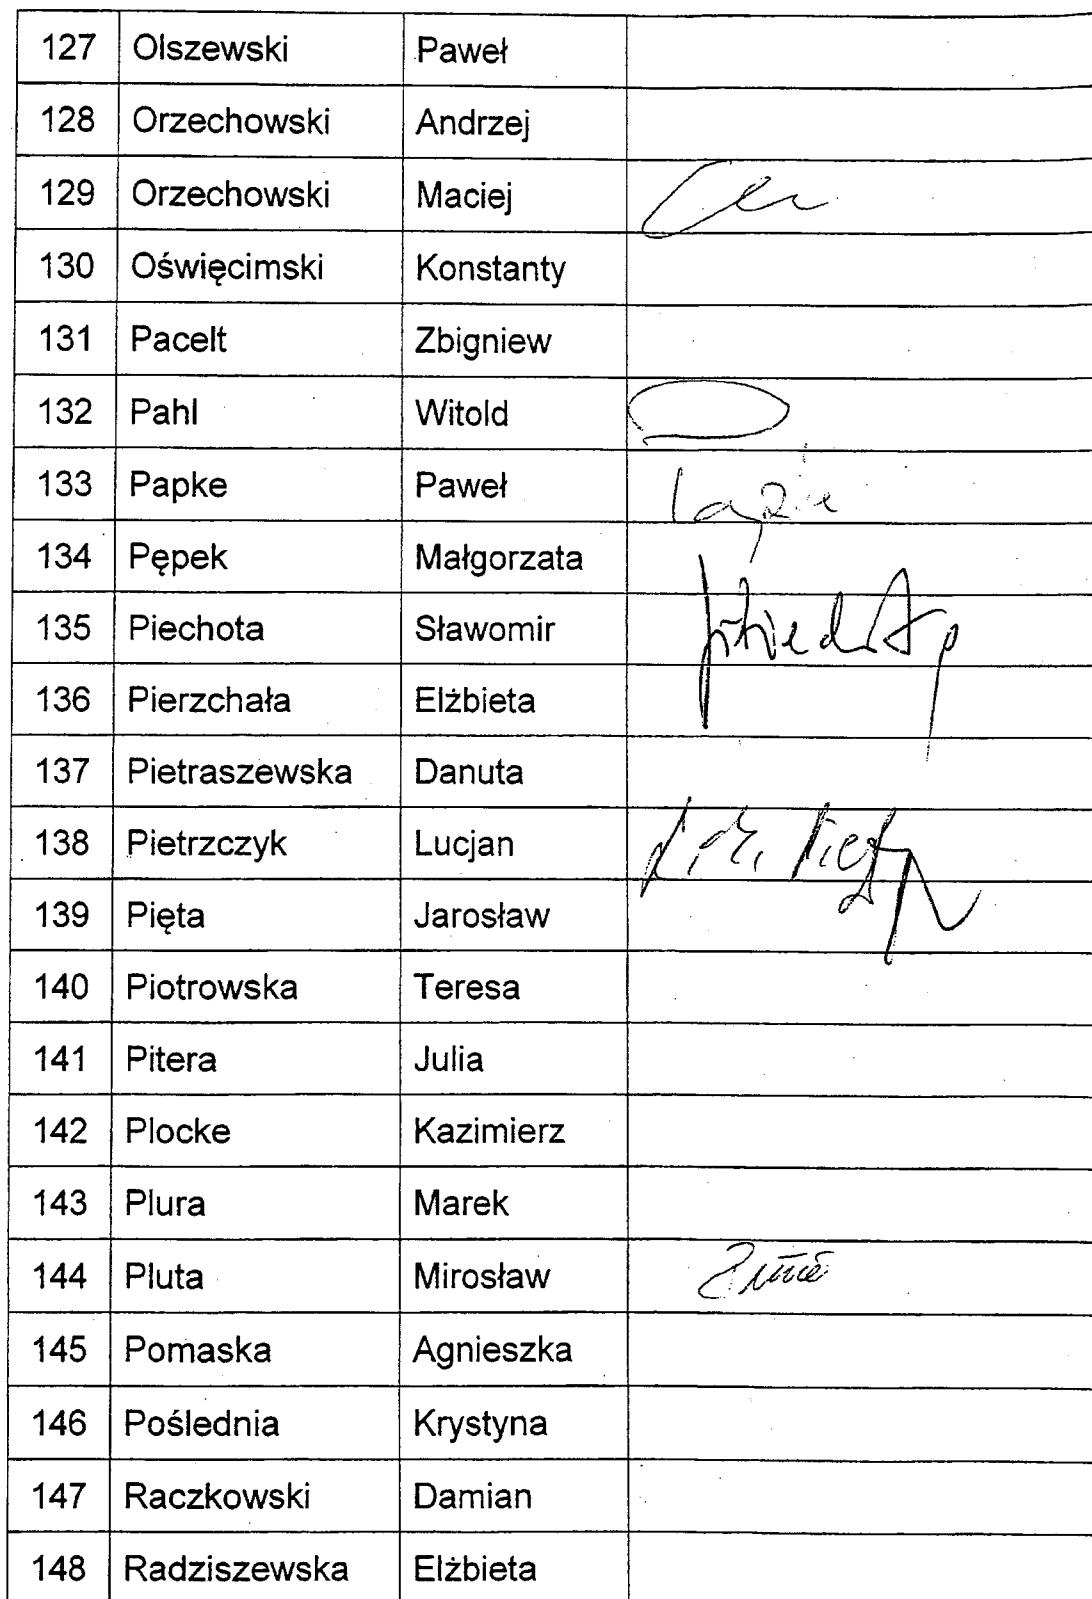 127 Olszewski Paweł
128 Orzechowski Andrzej
129 Orzechowski Maciej
130 Oświęcimski Konstanty
131 Pacelt Zbigniew
132 Pahl Witold
133 Papke Paweł
134 Pępek Małgorzata
135 Piechota Sławomir
136 Pierzchała Elżbieta
137 Pietraszewska Danuta
138 Pietrzczyk Lucjan
139 Pięta Jarosław
140 Piotrowska Teresa
141 Pitera Julia
142 Plocke Kazimierz
143 Plura Marek
144 Pluta Mirosław
145 Pomaska Agnieszka
146 Poślednia Krystyna
147 Raczkowski Damian
148 Radziszewska Elżbieta